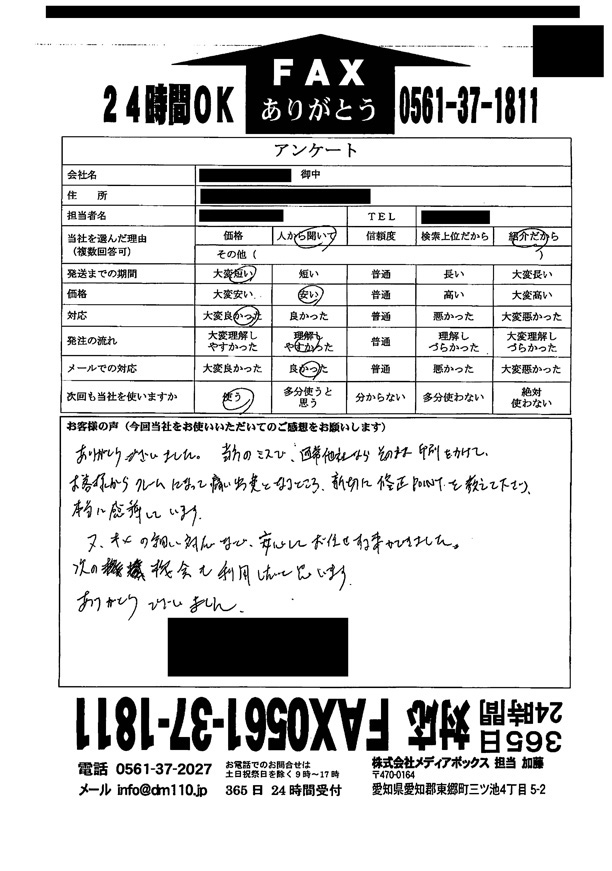 FAX
ありがとう
24時間OK
0561-37-1811
アンケート
会社名 御中
住 所
担当者名 TEL
当社を選んだ理由(複数回答可) 価格 人から聞いて 信頼度 検索上位だから 紹介だから
その他( )
発送までの期間 大変短い 短い 普通 長い 大変長い
価格 大変安い 安い 普通 高い 大変高い
対応 大変良かった 良かった 普通 悪かった 大変悪かった
発注の流れ 大変理解しやすかった 理解しやすかった 普通 理解しづらかった 大変理解しづらかった
メールでの対応 大変良かった 良かった 普通 悪かった 大変悪かった
次回も当社を使いますか 使う 多分使うと思う 分からない 多分使わない 絶対使わない
お客様の声(今回当社をお使いいただいてのご感想をお願いします)
ありがとうございました。当方のミスで、通常他社なら そのまま 印刷をかけて、
お客様から クレームになって痛い出費となるところ、親切に 修正POINTを教えて下さり、
本当に感謝しています。
又、キメの細い対応など、安心してお任せする事ができました。
次の機会も利用したいと思います。
ありがとうございました。
365日24時間対応 FAX0561-37-1811
電話 0561-37-2027
お電話でのお問合せは
土日祝祭日を除く9時～17時
メール info@dm110.jp
365日 24時間受付
株式会社メディアボックス 担当 加藤
〒470-0164
愛知県愛知郡東郷町三ツ池4丁目5-2